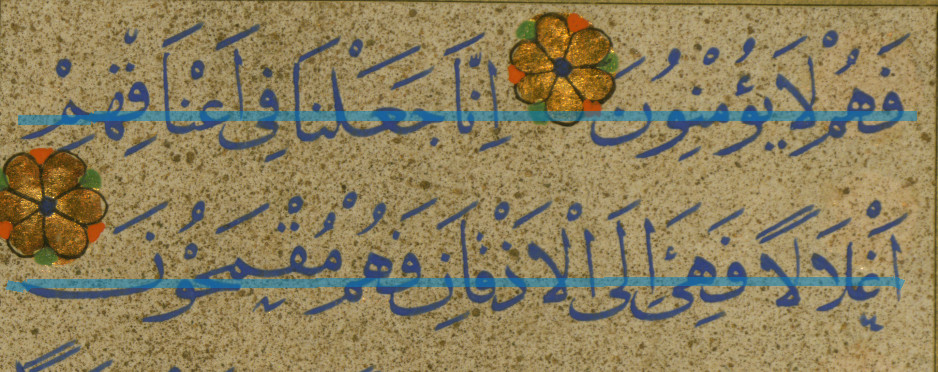 فَهُمْ لَا يُؤْمِنُونَ اِنَّا جَعَلْنَا فِى اَعْنَاقِهِمْ
اَغْلَالًا فَهِىَ اِلَى الْاَذْقَانِ فَهُمْ مُقْمَحُونَ